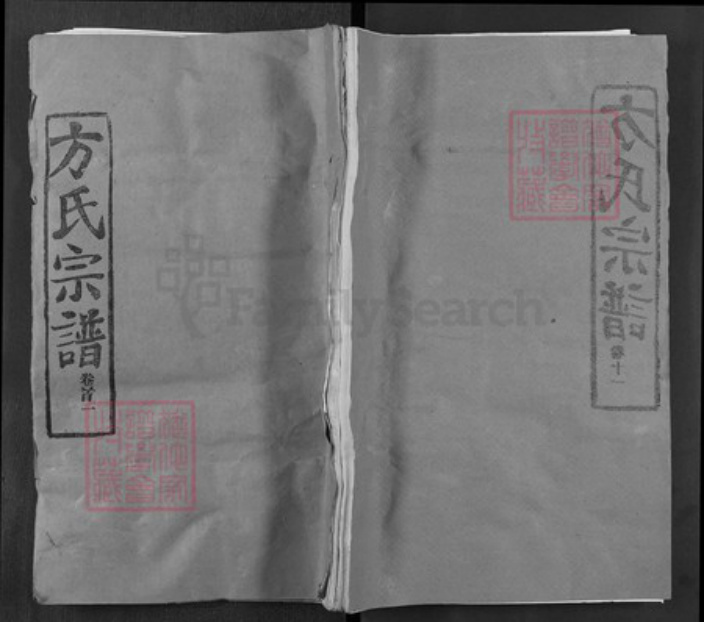 方氏宗譜
卷首一
方氏宗譜
卷十一
FamilySearch